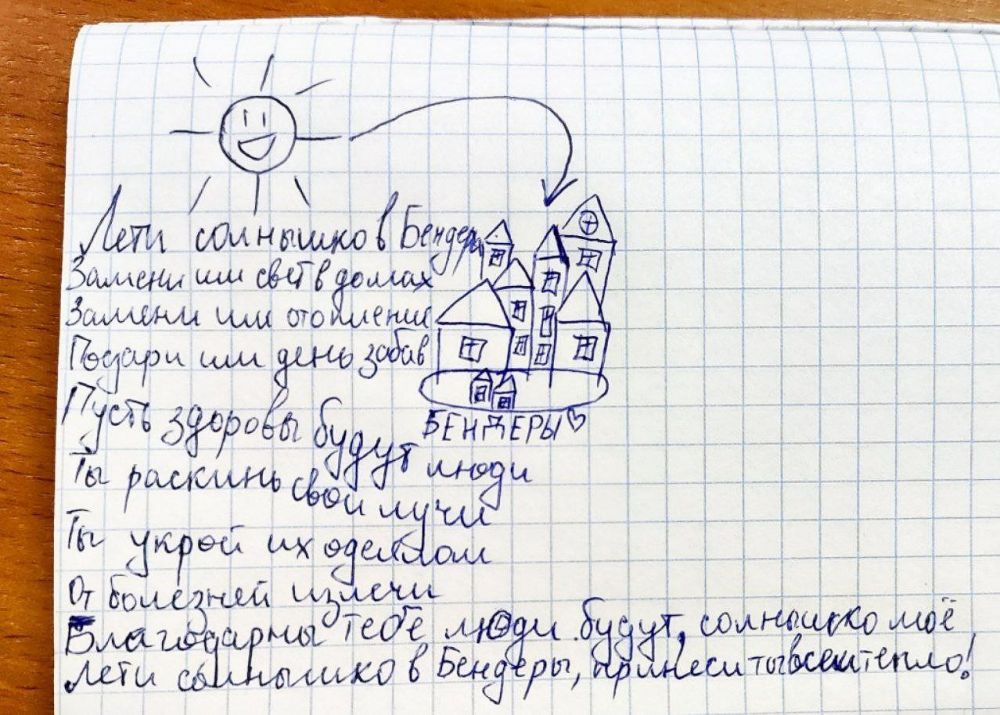 Лети солнышко в Бендеры
Замени им свет в домах
Замени им отопление
Подари им день забав
БЕНДЕРЫ
Пусть здоровы будут люди
Ты раскинь свои лучи
Ты укрой их одеялом
От болезней излечи
Благодарны тебе люди будут, солнышко моё
Лети солнышко в Бендеры, принеси ты всем тепло!